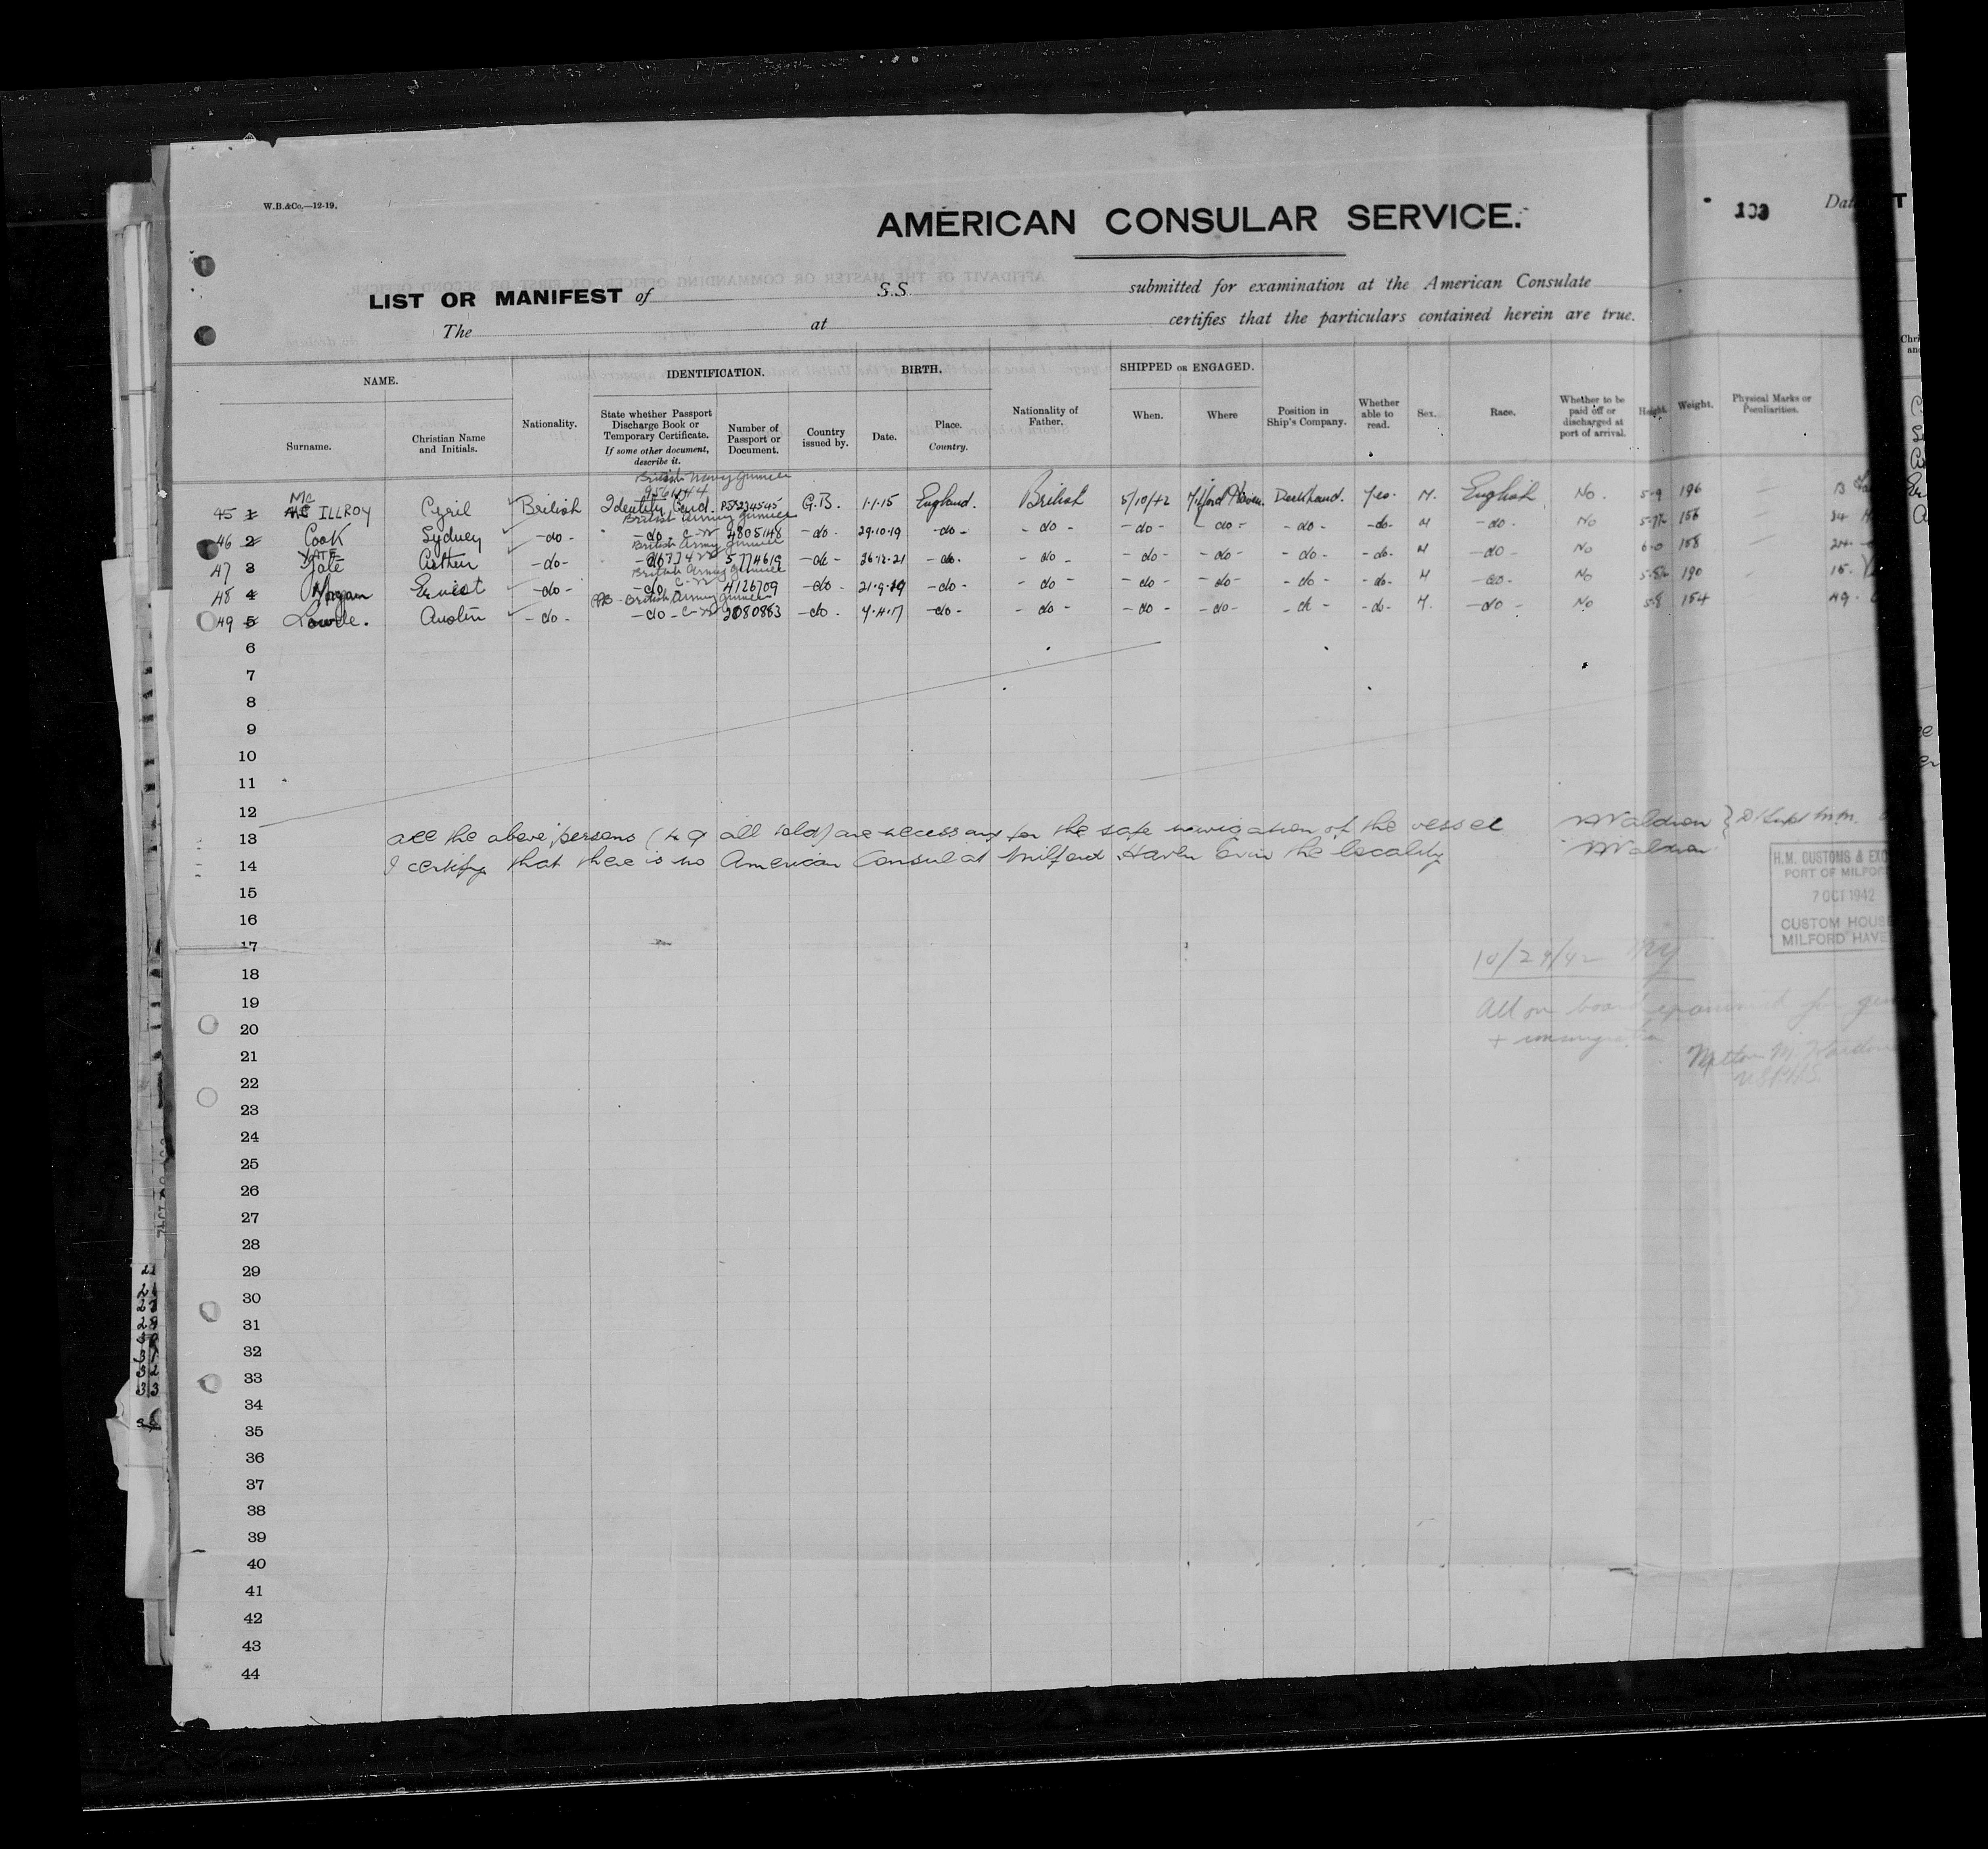 W.B.&Co.—12-19.
AMERICAN CONSULAR SERVICE.
103
LIST OR MANIFEST of S.S. submitted for examination at the American Consulate
The at certifies that the particulars contained herein are true.
NAME. IDENTIFICATION. BIRTH. SHIPPED OR ENGAGED.
Surname. Christian Name and Initials. Nationality. State whether Passport Discharge Book or Temporary Certificate. If some other document, describe it. Number of Passport or Document. Country issued by. Date. Place. Country. Nationality of Father. When. Where Position in Ship's Company. Whether able to read. Sex. Race. Whether to be paid off or discharged at port of arrival. Height. Weight. Physical Marks or Peculiarities.
British Navy Gunner
45 1 Mc ILLROY Cyril British Identity Card. G.B. 1-1-15 England. British 5/10/42 Milford Haven. Deckhand. Yes. M. English No. 5-9 196 —
British Army Gunner
46 2 Cook Sydney -do- -do- 4805148 -do- 29-10-19 -do- -do- -do- -do- -do- -do- M -do- No 156 —
British Army Gunner
47 3 Arthur -do- 5774619 -do- 26-12-21 -do- -do- -do- -do- -do- -do- M -do- No 6-0 158
British Army Gunner
48 4 Ernest -do- -do- 4126709 -do- -do- -do- -do- -do- -do- -do- M -do- No 190
British Army Gunner
49 5 Austin -do- -do- 2080883 -do- 7-4-17 -do- -do- -do- -do- -do- -do- M. -do- No 5-8 154
6
7
8
9
10
11
12
13 all the above persons (49 all told) are necessary for the safe navigation of the vessel Waldron
14 I certify that there is no American Consul at Milford Haven or in the locality Waldron
H.M. CUSTOMS & EXC
PORT OF MILFOR
7 OCT 1942
CUSTOM HOUSE
MILFORD HAVE
15
16
17
10/29/42
18
19
All on board examined for
20
+ immigration
21
U.S.P.H.S.
22
23
24
25
26
27
28
29
30
31
32
33
34
35
36
37
38
39
40
41
42
43
44